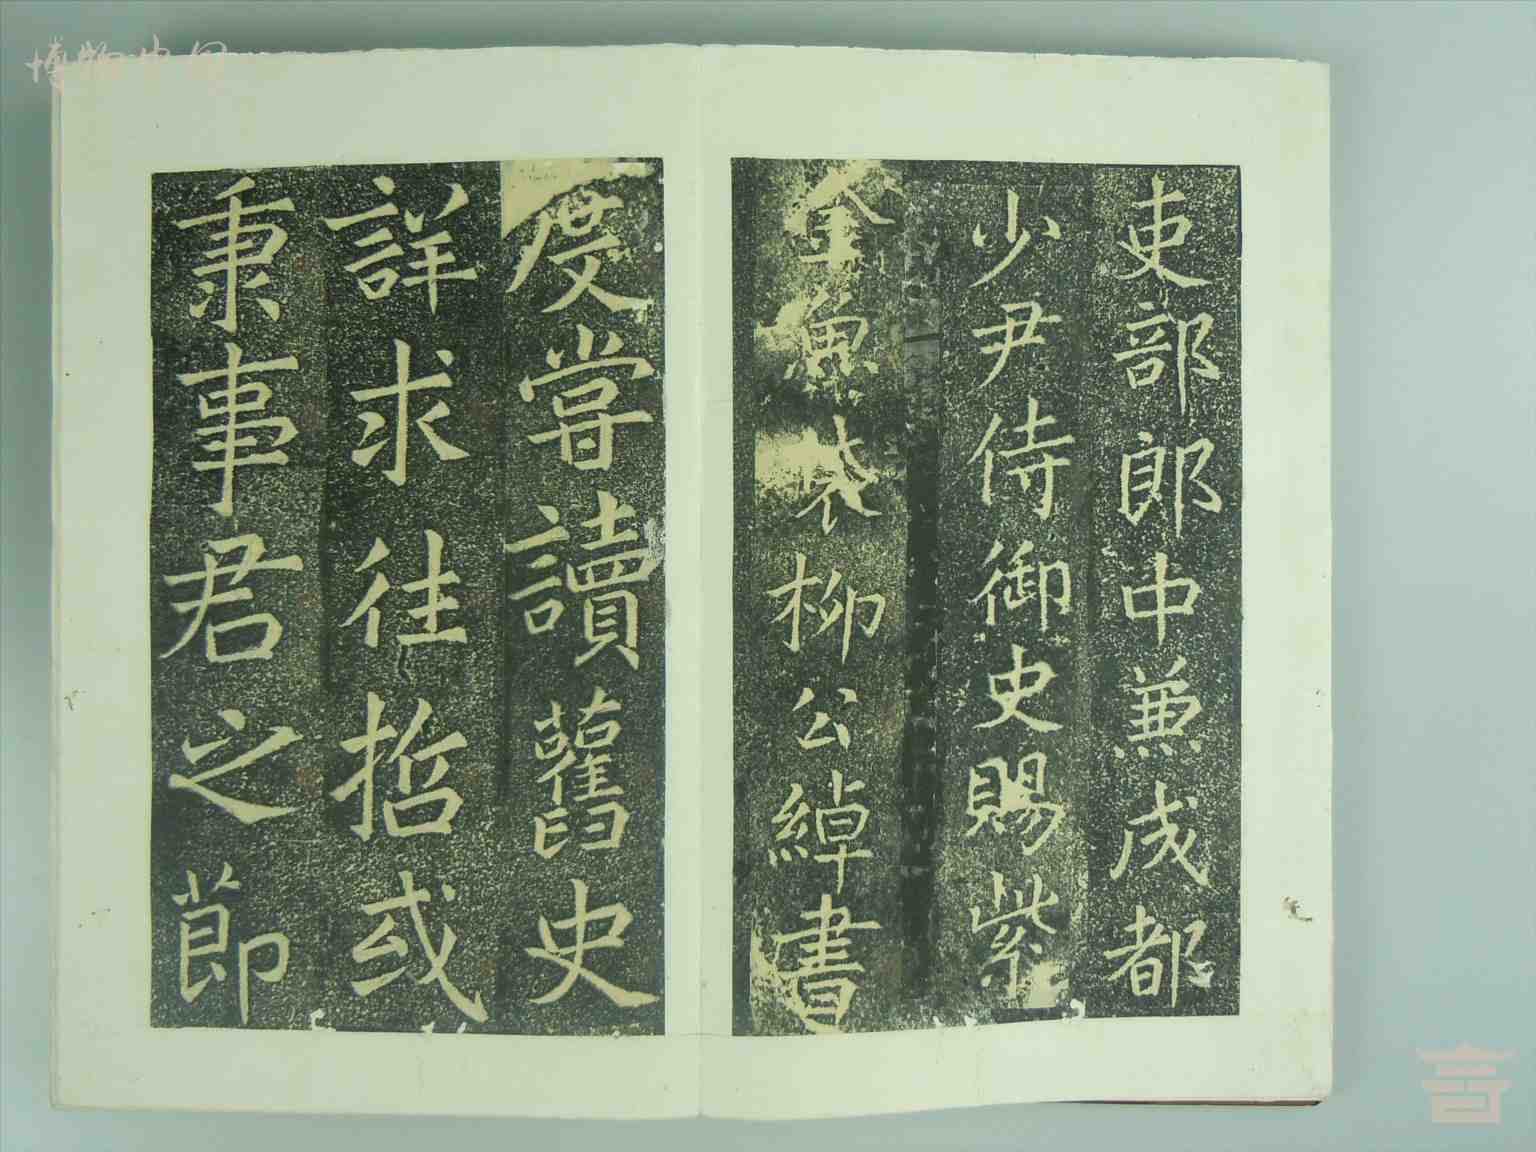 吏部郎中兼成都
少尹侍御史賜紫
金魚袋柳公綽書
度嘗讀舊史
詳求往哲或
秉事君之節
博物中国